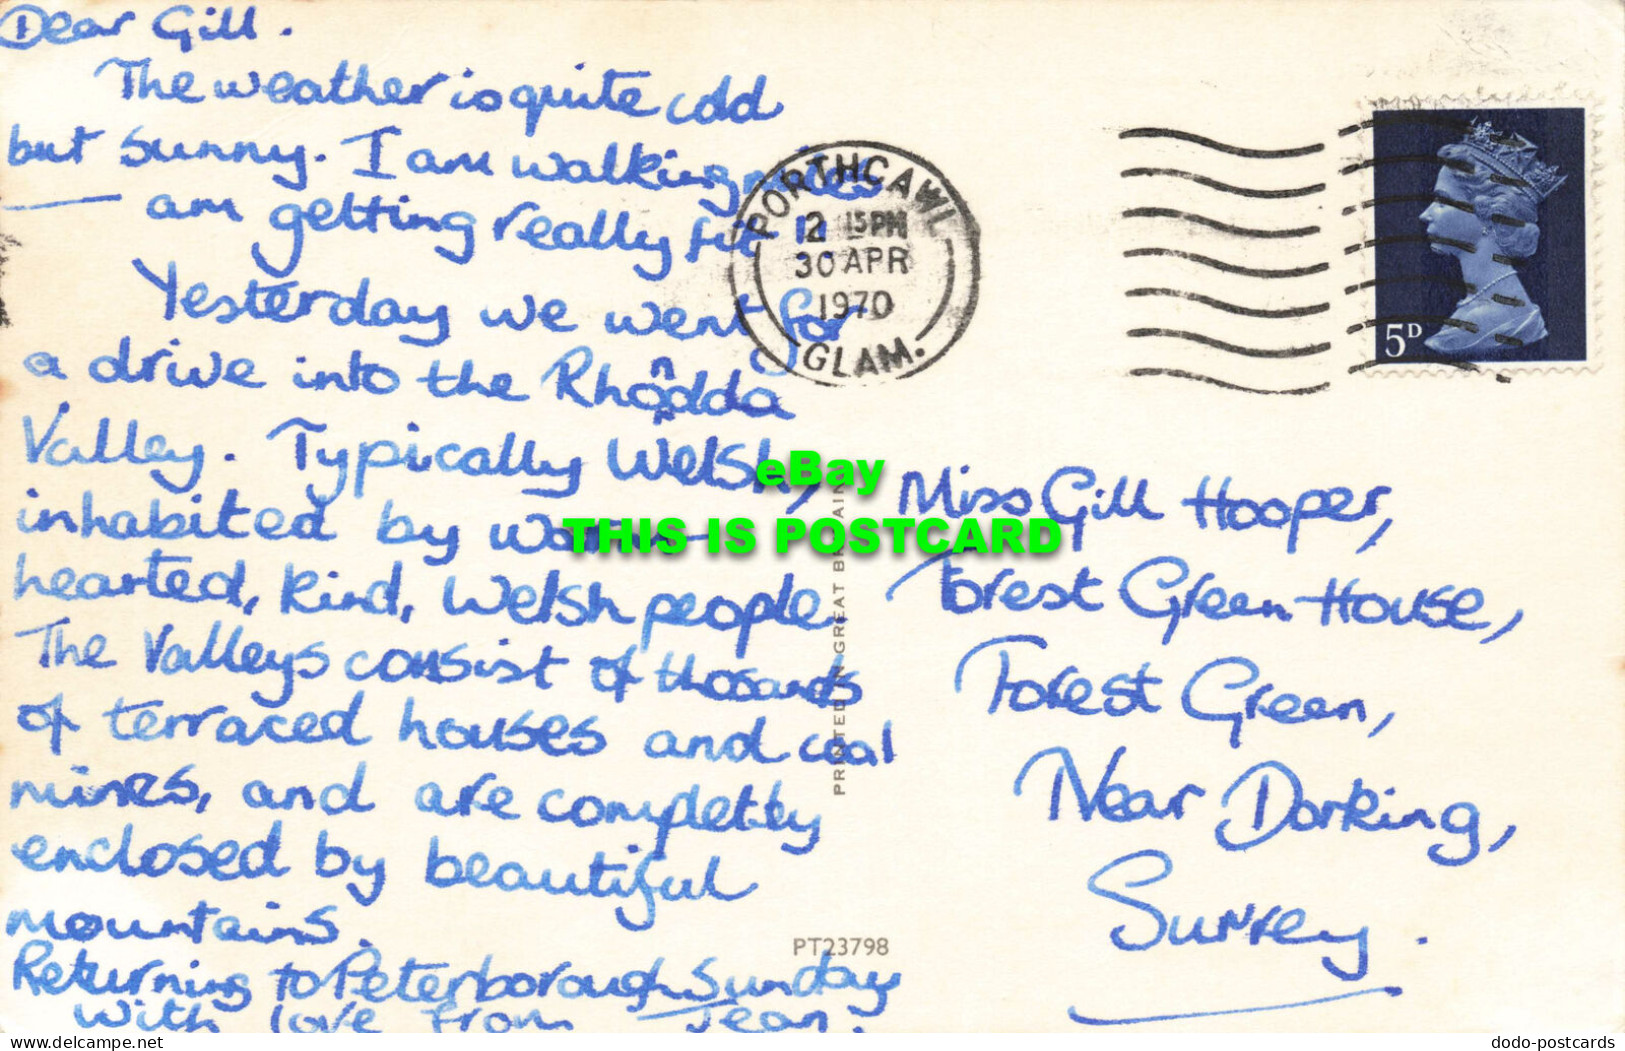 Dear Gill.
The weather is quite cold
but sunny. I am walking miles
— am getting really fit !!
Yesterday we went for
a drive into the Rhondda
Valley. Typically Welsh,
inhabited by warm-
hearted, kind, Welsh people.
The Valleys consist of thosands
of terraced houses and coal
mines, and are completly
enclosed by beautiful
mountains.
Returning to Peterborough Sunday
With love from Jean.
PORTHCAWL
2 15PM
30 APR
1970
GLAM.
5D
Miss Gill Hooper,
Forest Green House,
Forest Green,
Near Dorking,
Surrey.
PRINTED IN GREAT BRITAIN
PT23798
eBay
THIS IS POSTCARD
delcampe.net
dodo-postcards